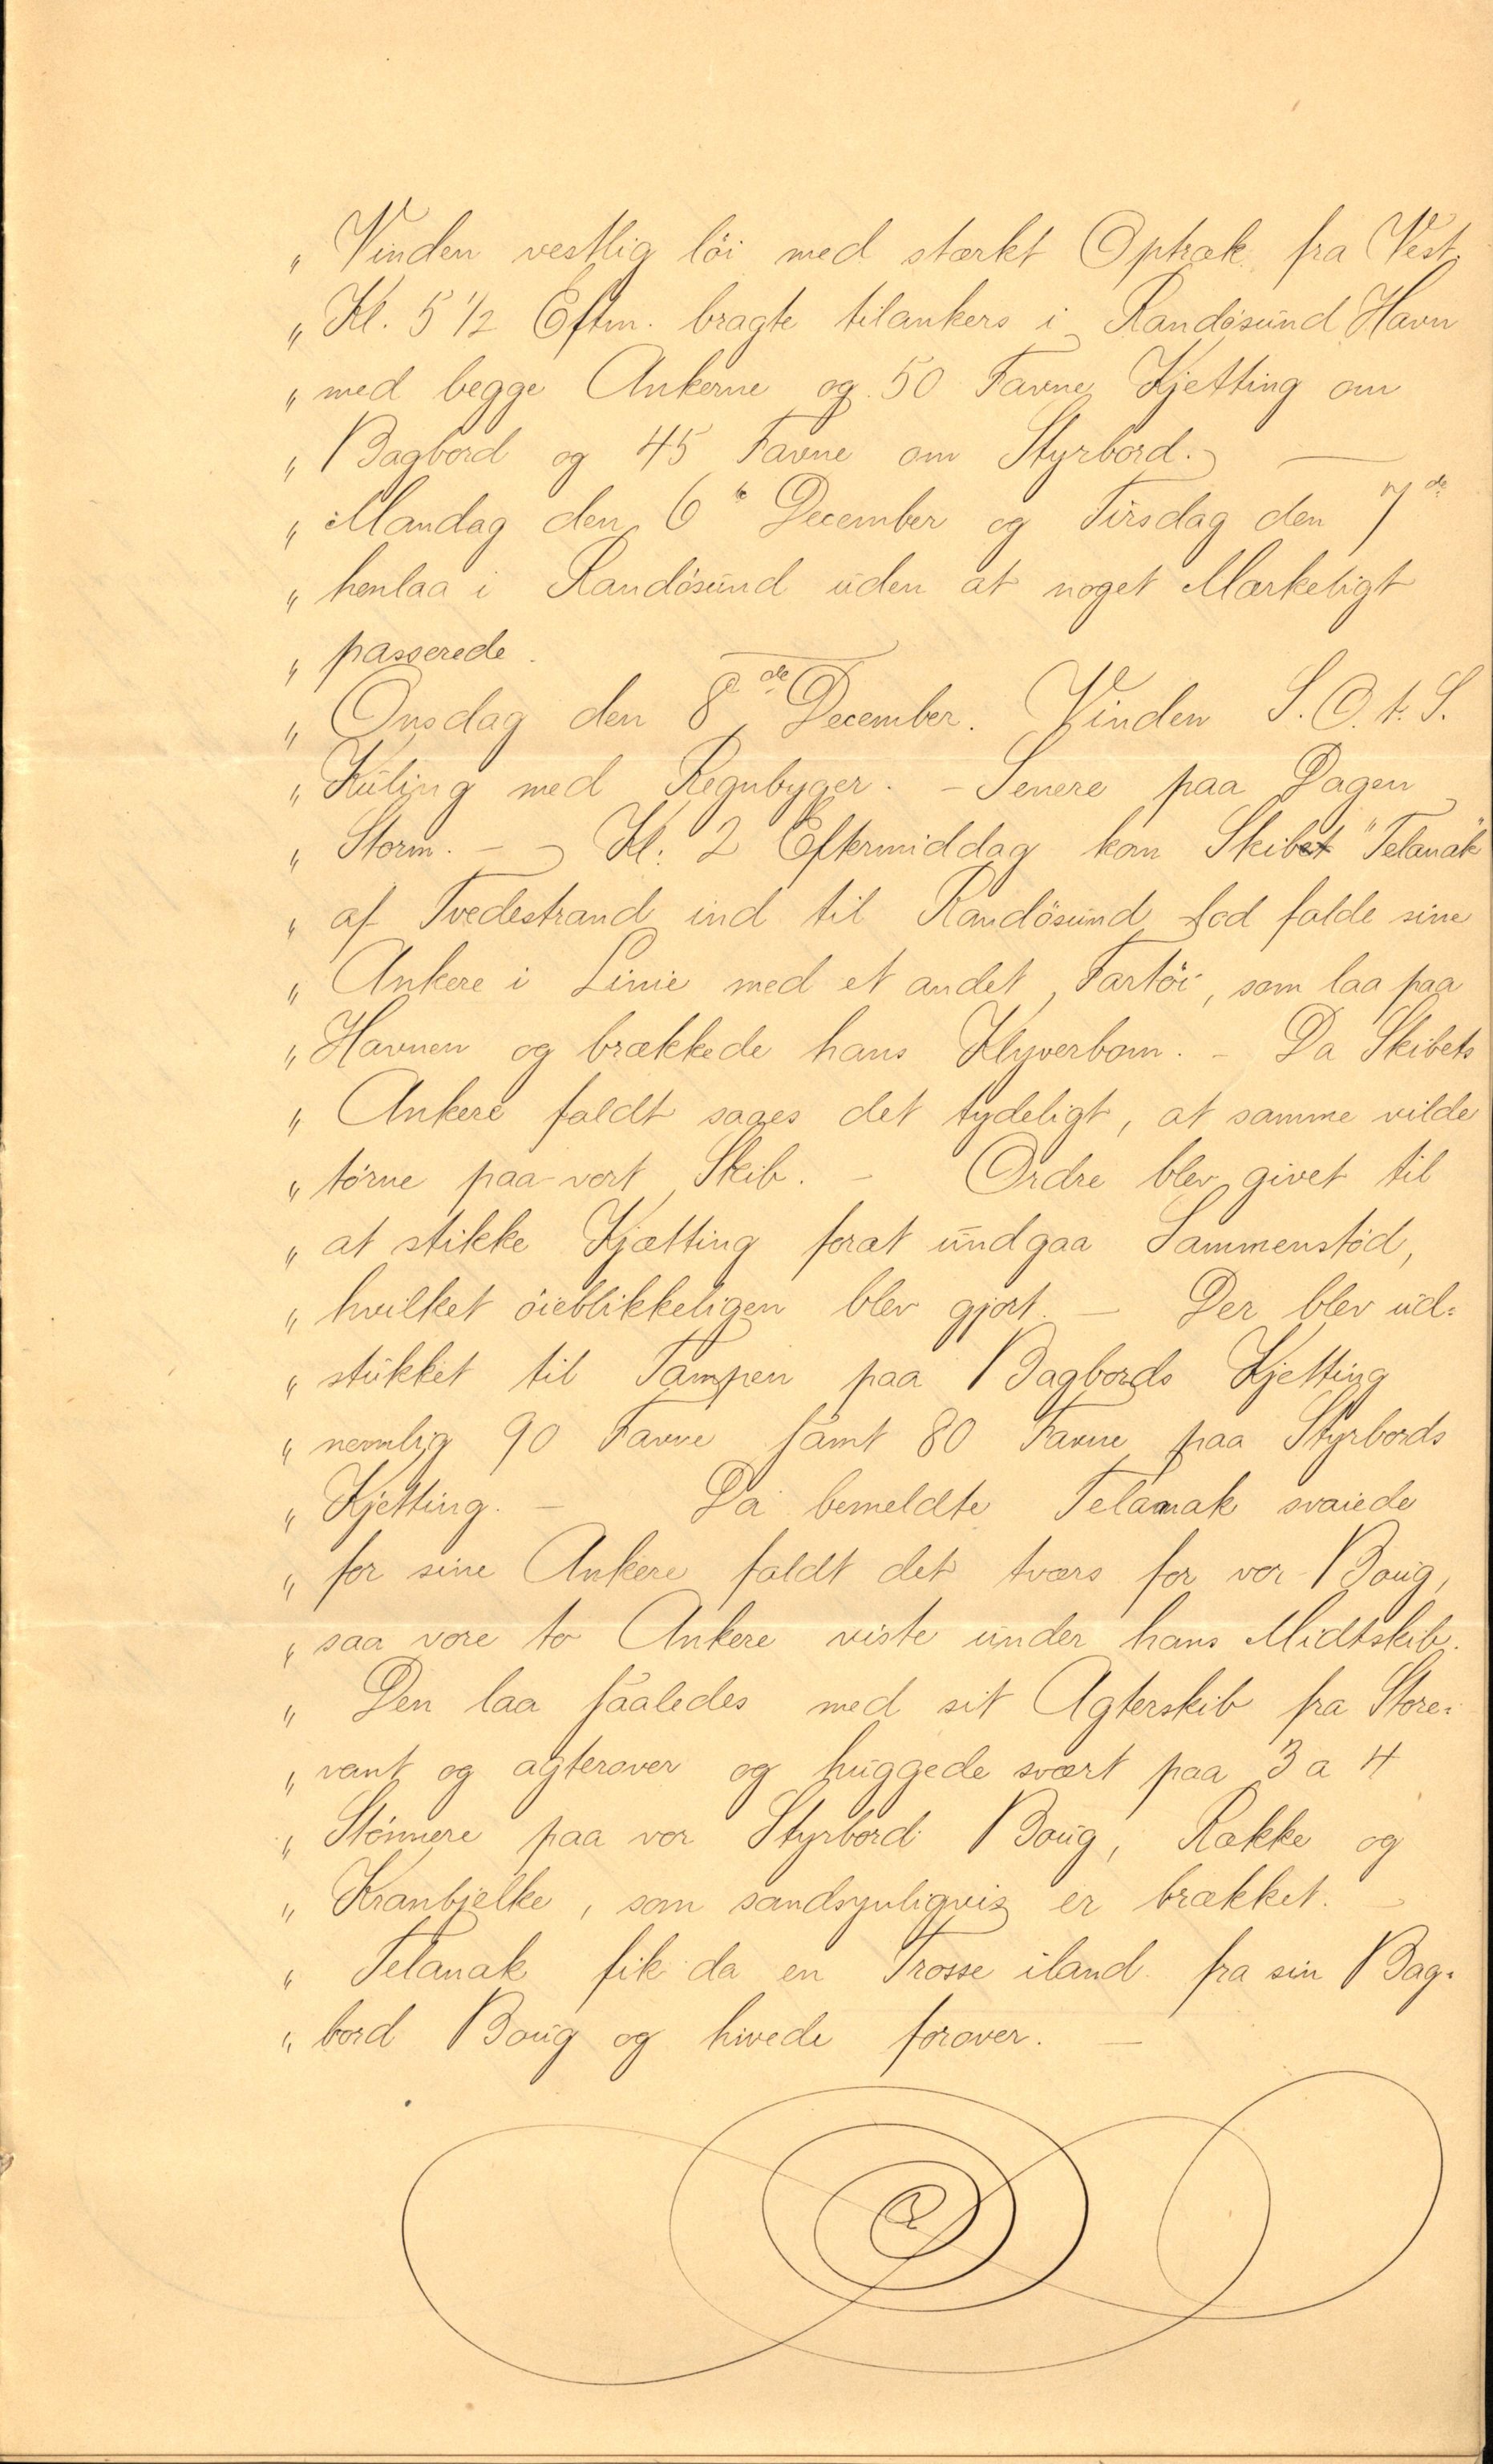 „ Vinden vestlig löi med stærkt Optræk fra Vest.
„ Kl. 5 1/2 Eftm. bragte tilankers i Randösund Havn
„ med begge Ankerne og 50 Favne Kjetting om
„ Bagbord og 45 Favne om Styrbord. —
„ Mandag den 6te December og Tirsdag den 7de
„ henlaa i Randösund uden at noget Mærkeligt
„ passerede.
„ Onsdag den 8de December. Vinden S.O.t.S.
„ Kuling med Regnbyger. – Senere paa Dagen
„ Storm. – – Kl. 2 Eftermiddag kom Skibet "Telanak"
„ af Tvedestrand ind til Randösund lod falde sine
„ Ankere i Linie med et andet Fartöi, som laa paa
„ Havnen og brækkede hans Klyverbom. – Da Skibets
„ Ankere faldt saaes det tydeligt, at samme vilde
„ törne paa vort Skib. – Ordre blev givet til
„ at stikke Kjætting forat undgaa Sammenstöd,
„ hvilket öieblikkeligen blev gjort. – Der blev ud=
„ stukket til Tampen paa Bagbords Kjetting
„ nemlig 90 Favne samt 80 Favne paa Styrbords
„ Kjetting. – Da bemeldte Telanak svaiede
„ for sine Ankere faldt det tværs for vor Boug,
„ saa vore to Ankere viste under hans Midtskib.
„ Den laa saaledes med sit Agterskib fra Store=
„ vant og agterover og huggede svært paa 3 a 4
„ Stönnere paa vor Styrbord Boug, Række og
„ Kranbjelke, som sandsynligvis er brækket. –
„ Telanak fik da en Trosse iland fra sin Bag=
„ bord Boug og hivede forover. —